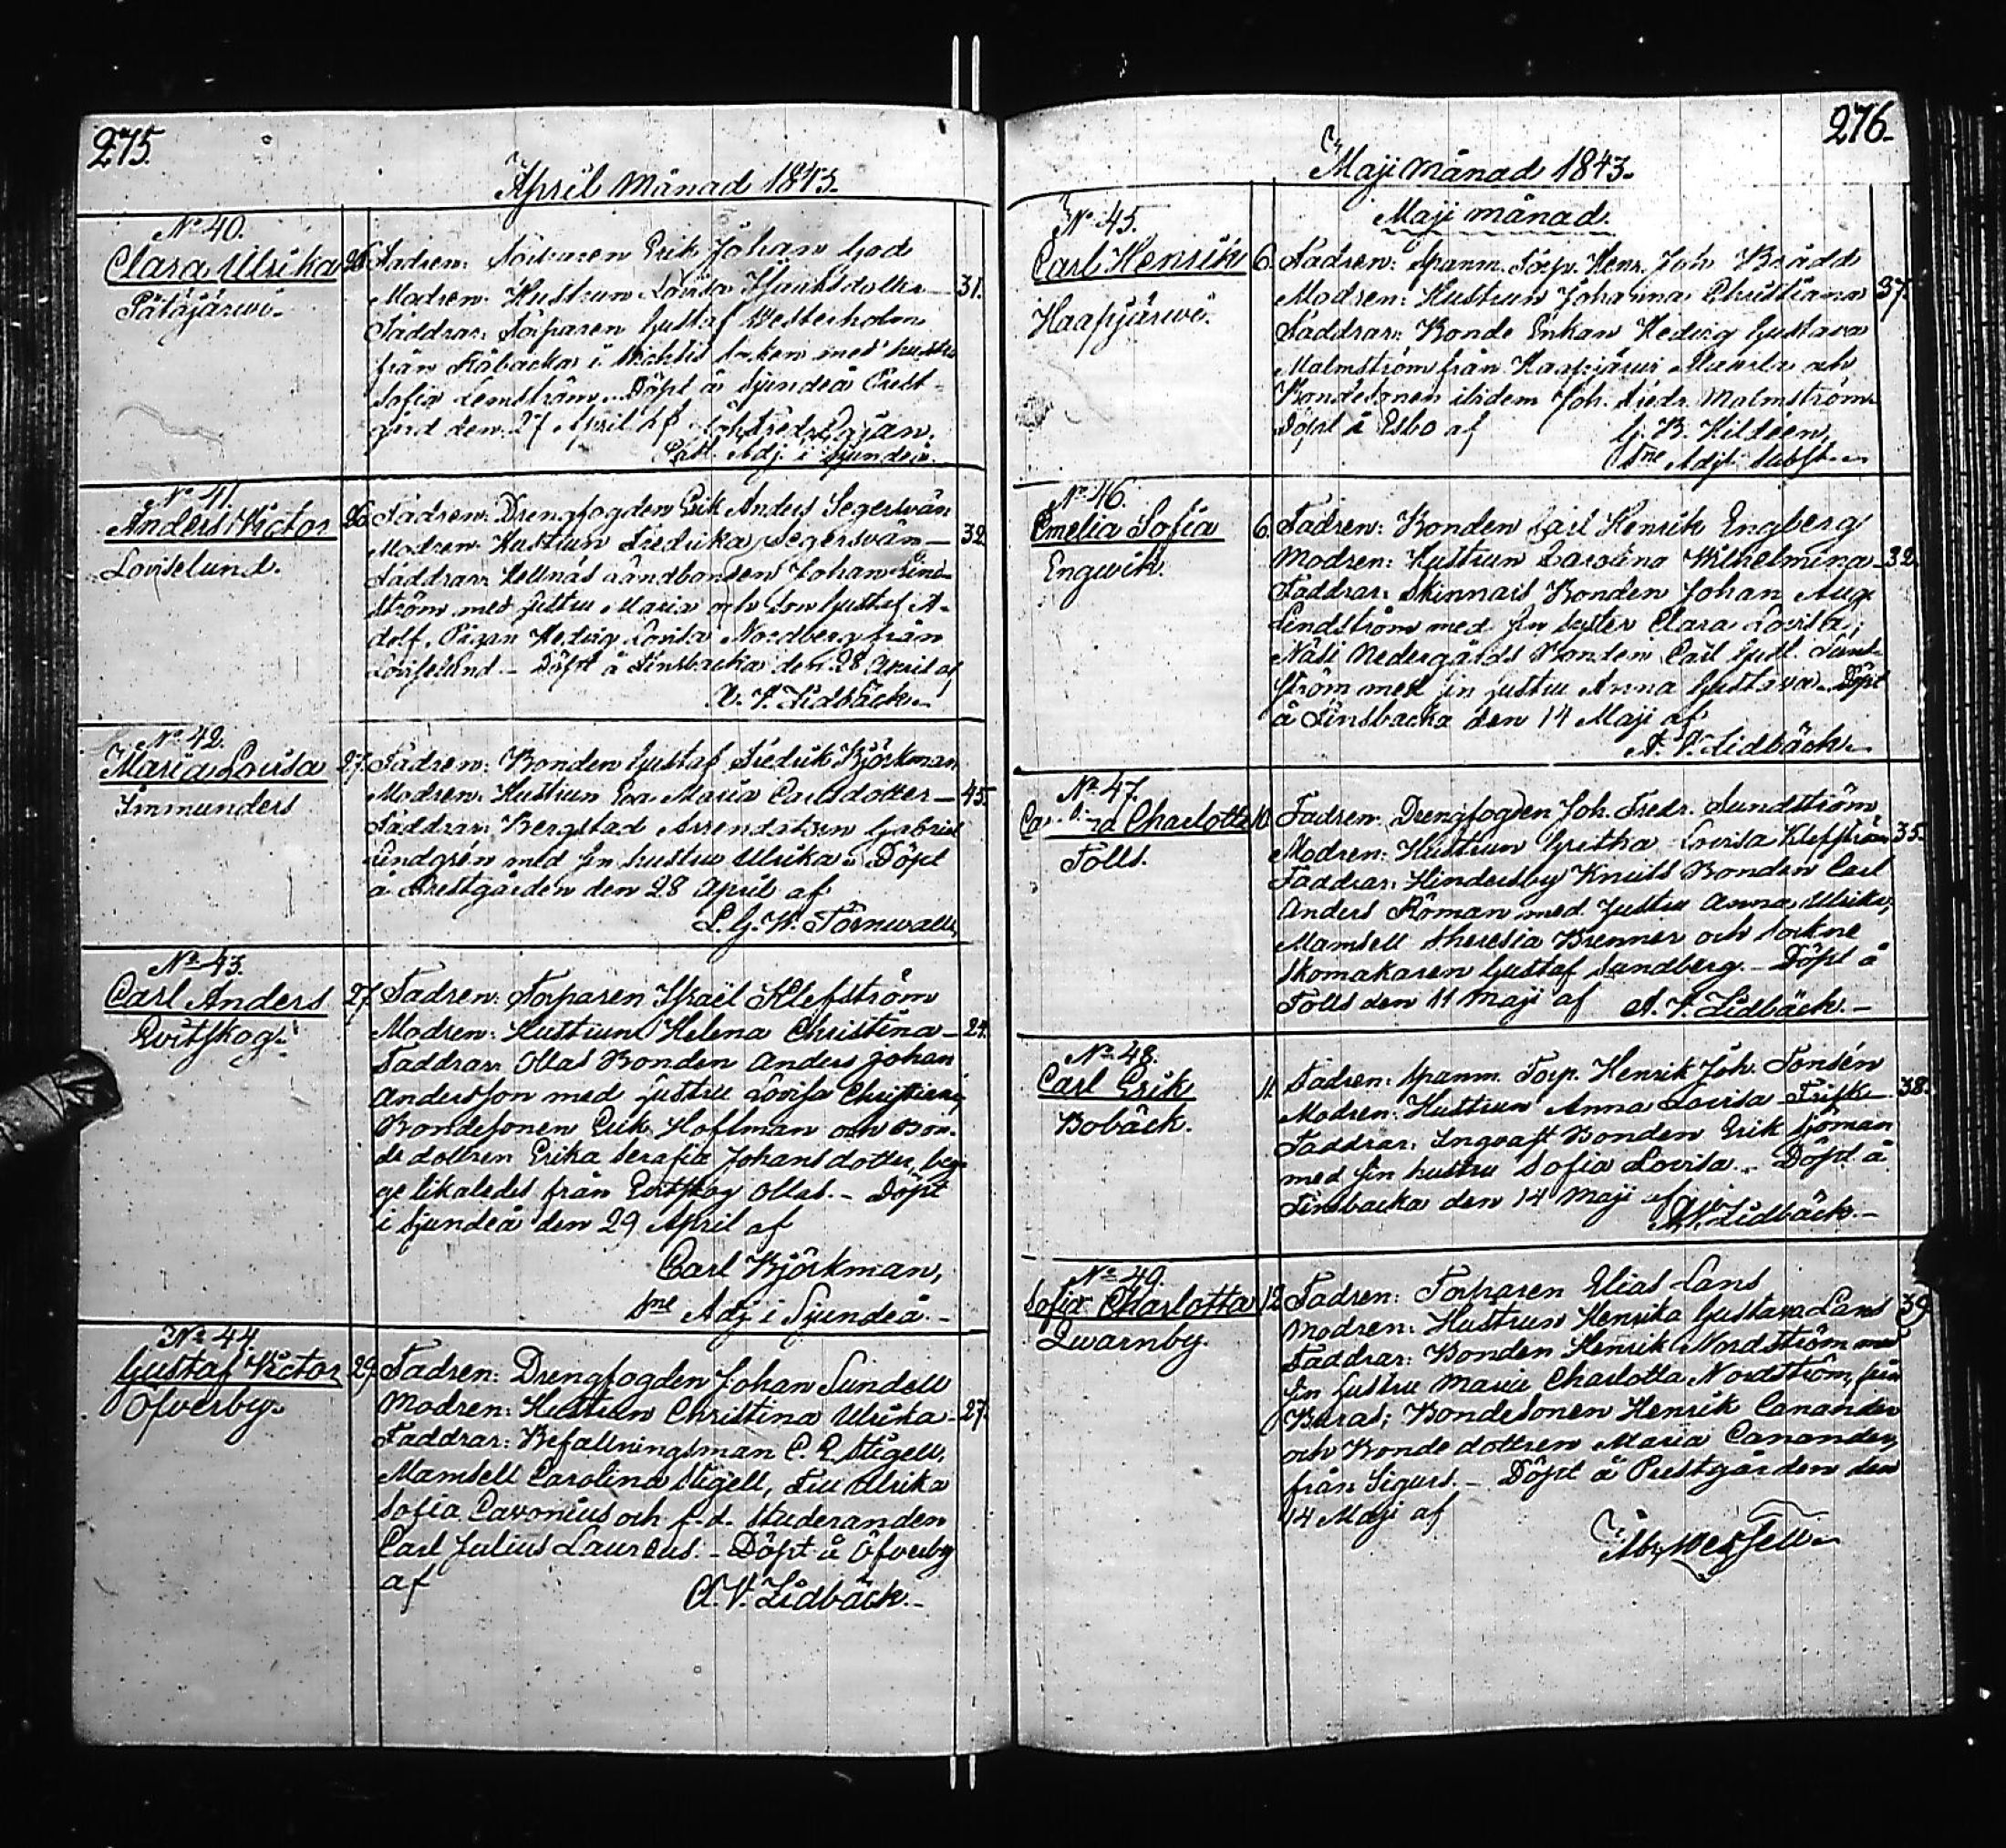 275.
April Månad 1843.
No 40.
Clara Ulrika
Påtåjärwi.
26. Fadren: Torparen Erik Johan God
Modren: Hustrun Lovisa Henriksdotter — 31.
Faddrar: Torparen Gustaf Westerholm
från Kråbacka i Wichtis Socken med hustru
Sofia Lemström. Döpt å Sjundeå Prest-
gård den 27 April af Joh. Fredr.
Past. Adj. i Sjundeå.
No 41.
Anders Victor
Loviselund.
26. Fadren: Drengfogden Erik Anders Segersvän
Modren: Hustrun Fredrika Segersvän — 32.
Faddrar: Hellnäs Landbonden Johan Lind-
ström med hustru Maria och Son Gustaf A-
dolf, Pigan Hedvig Lovisa Nordberg från
Loviselund. — Döpt å Finsbacka den 28 April af
A. V. Lidbäck.
No 42.
Maria Lovisa
Immunders
27. Fadren: Bonden Gustaf Fredrik Björkman
Modren: Hustrun Eva Maria Carlsdotter — 45.
Faddrar: Bergstad Arrendatorn Gabriel
Lindgrén med sin hustru Ulrika. Döpt
å Prestgården den 28 April af
L. G. W. Törnwall.
No 43.
Carl Anders
Evitskog.
27. Fadren: Torparen Israël Klefström
Modren: Hustrun Helena Christina — 24.
Faddrar: Ollas Bonden Anders Johan
Andersson med hustru Lovisa Christina;
Bondesonen Erik Hoffman och Bon-
de dottren Erika Serafia Johansdotter, beg-
ge likaledes från Evitskog Ollas. — Döpt
i Sjundeå den 29 April af
Carl Björkman,
Sne Adj i Sjundeå. —
No 44.
Gustaf Victor
Öfverby.
29. Fadren: Drengfogden Johan Sundell
Modren: Hustrun Christina Ulrika — 27.
Faddrar: Befallningsman C. E. Stigell,
Mamsell Carolina Stigell, Fru Ulrika
Sofia Cavonius och f.d. Studeranden
Carl Julius Laurous. — Döpt å Öfverby
af A. V. Lidbäck. —
276.
Maji månad 1843.
Maji månad.
No 45.
Carl Henrik
Haapjärwi.
6. Fadren: Spanm. Torp. Henr. Joh. Brådd
Modren: Hustrun Johanna Christiana 37.
Faddrar: Bonde Enkan Hedvig Gustava
Malmström från Haapjärwi och
Bondesonen ibidem Joh. Fredr. Malmström
Döpt i Esbo af G. B. Hildéen,
Sne Adjt Subst.
No 46.
Emelia Sofia
Engwik.
6. Fadren: Bonden Carl Henrik Engberg
Modren: Hustrun Carolina Wilhelmina — 32.
Faddrar: Skinnars Bonden Johan Aug.
Lindström med sin Syster Clara Lovisa;
Näse Nedergårds Bonden Carl Gust. Sund-
ström med sin hustru Anna Gustava. Döpt
å Finsbacka den 14 Maji af
A. V. Lidbäck.
No 47.
Charlotta
Tolls.
10. Fadren: Drengfogden Joh. Fredr. Sundström
Modren: Hustrun Gretka Lovisa Klefström 35.
Faddrar: Hindersby Knuss Bonden Carl
Anders Röman med hustru Anna Ulrika,
Mamsell Theresia Brenner och Sockne
Skomakaren Gustaf Sandberg. — Döpt å
Tolls den 11 Maji af A. V. Lidbäck. —
No 48.
Carl Erik
Bobäck.
11. Fadren: Spanm. Torp. Henrik Joh. Tonsén
Modren: Hustrun Anna Lovisa Frisk — 38.
Faddrar: Ingvast Bonden Erik Sjöman
med sin hustru Sofia Lovisa. — Döpt å
Finsbacka den 14 Maji af
A. V. Lidbäck. —
No 49.
Sofia Charlotta
Qwarnby.
12. Fadren: Torparen Elias Lans
Modren: Hustrun Henrika Gustava Lans 39
Faddrar: Bonden Henrik Nordström med
sin hustru Maria Charlotta Nordström, från
Buras; Bondesonen Henrik Canander
och Bonde dottren Maria Canander,
från Sigurs. — Döpt å Prestgården den
14 Maji af